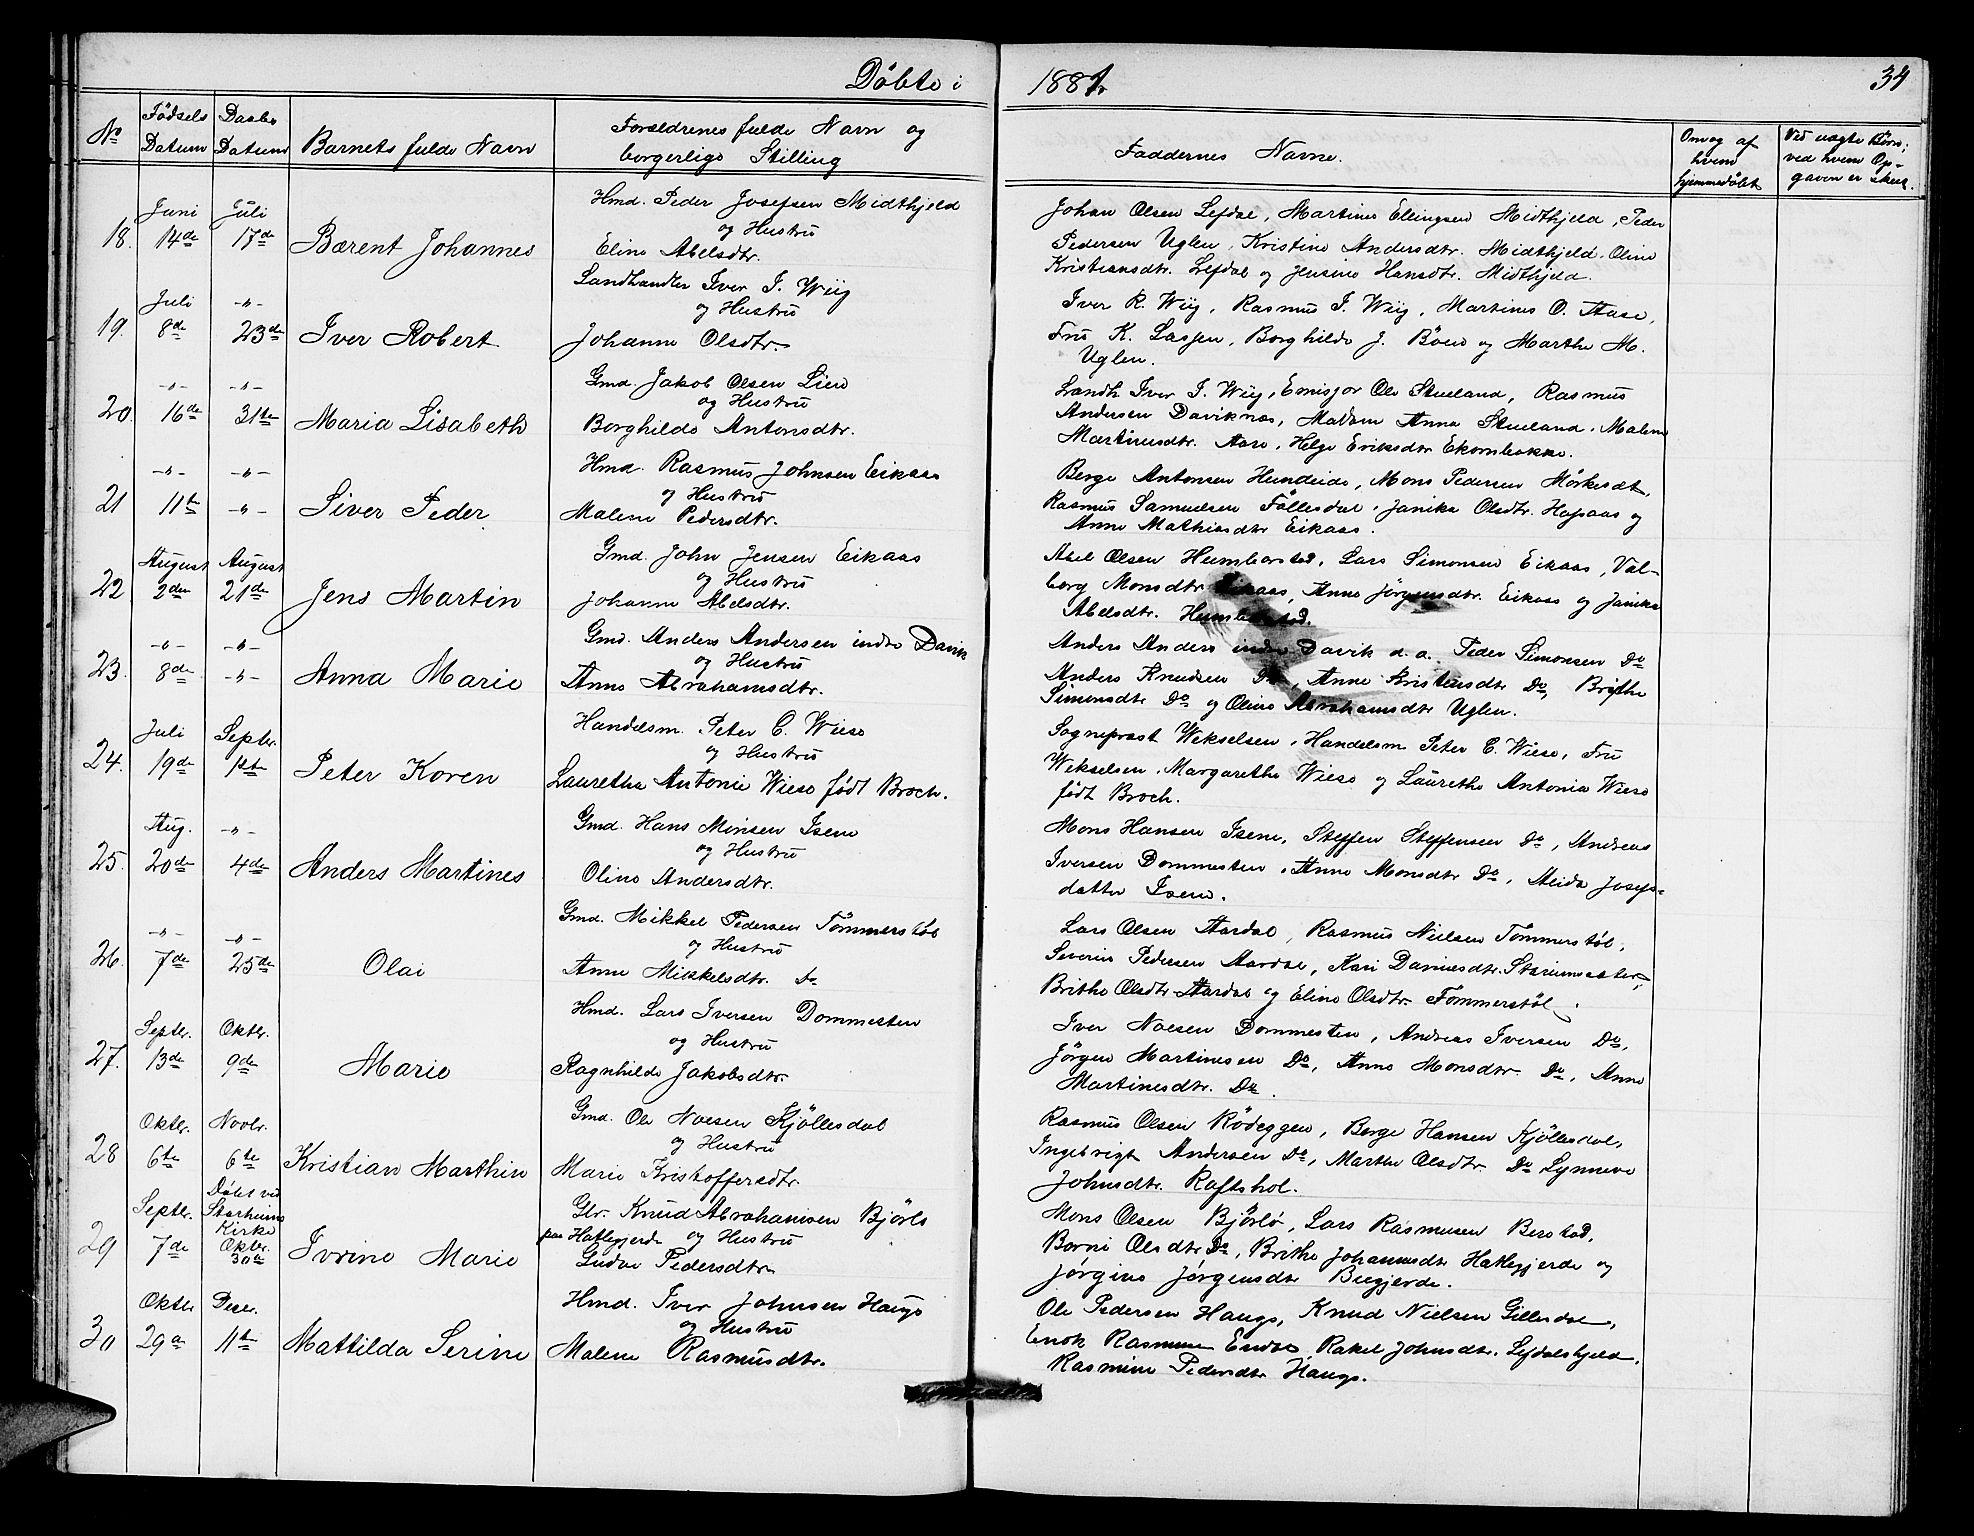 Døbte i 1881.
34
No
Fødsels Datum
Daabs Datum
Barnets fulde Navn
Forældrenes fulde Navn og
borgerlige Stilling
Faddernes Navne.
Om og af
hvem
hjemmedøbt
Ved uægte Børn;
ved hvem Op-
gaven er skeet.
18. Juni 14de Juli 17de Bærent Johannes
Hmd. Peder Josefsen Midthjeld
og Hustru
Eline Abelsdtr.
Johan Olsen Lefdal, Martines Ellingsen Midthjeld, Peder
Pedersen Uglen, Kristine Andersdtr. Midthjeld, Oline
Kristiansdtr. Lefdal og Jensine Hansdtr. Midthjeld.
19. Juli 8de -"- 23de Iver Robert
Landhandler Iver I. Wiig
og Hustru
Johanne Olsdtr.
Iver R. Wiig, Rasmus I. Wiig, Martines O. Aase,
Fru K. Lassen, Borghilde J. Böen og Marthe M.
Uglen.
20. -"- 16de -"- 31te Maria Lisabeth
Gmd. Jakob Olsen Lien
og Hustru
Borghilde Antonsdtr.
Landh. Iver I. Wiig, Emisjær Ole Stueland, Rasmus
Andersen Daviknæs, Madam Anna Stueland, Malene
Martinusdtr. Aase, Helge Eriksdtr Ekornbakke.
21 -"- 11te -"- -"- Siver Peder
Hmd. Rasmus Johnsen Eikaas
og Hustru
Malene Pedersdtr.
Berge Antonsen Hundeide, Mons Pedersen
Rasmus Samuelsen Föllesdal, Janike Olsdtr. Hapaas og
Anne Mathiasdtr Eikaas.
22 August 2den August 21de Jens Martin
Gmd. John Jensen Eikaas
og Hustru
Johanne Abelsdtr.
Abel Olsen Humborstad, Lars Simonsen Eikaas, Val-
borg Monsdtr Eikaas, Anne Jörgensdtr. Eikaas og Janike
Abelsdtr. Humborstad.
23. -"- 8de -"- -"- Anna Marie
Gmd. Anders Andersen indre Davik
og Hustru
Anne Abrahamsdtr.
Anders Anders indre Davik d. a. Peder Simonsen Do
Anders Knudsen Do, Anne Kristensdtr Do, Brithe
Simonsdtr Do og Oline Abrahamsdtr Uglen.
24. Juli 19de Septbr. 1ste Peter Koren
Handelsm. Peter C. Wiese
og Hustru
Laurethe Antonie Wiese født Broch.
Sogneprest Wekselsen, Handelsm Peter C. Wiese, Fru
Wekselsen, Margarethe Wiese og Laurethe Antonia Wiese
født Broch.
25. Aug. 20de -"- 4de Anders Martines
Gmd. Hans Monsen Isene
og Hustru
Oline Andersdtr.
Mons Hansen Isene, Steffen Steffensen Do, Andreas
Iversen Dommesten, Anne Monsdtr Do, Aleida Josefs-
datter Isene.
26. -"- 7de -"- 25de Olai
Gmd. Mikkel Pedersen Tömmerstöl
og Hustru
Anne Mikkelsdtr. Do
Lars Olsen Aardal, Rasmus Nielsen Tömmerstöl,
Severin Pedersen Aardal, Kari Danielsdtr. Starumsæter,
Brithe Olsdtr Aardal og Eline Olsdtr. Tömmerstöl.
27. Septbr. 13de Oktbr. 9de Marie
Hmd. Lars Iversen Dommesten
og Hustru
Ragnhilde Jakobsdtr.
Iver Noesen Dommesten, Andreas Iversen Do,
Jörgen Martinesen Do, Anne Monsdtr. Do, Anne
Martinesdtr. Do.
28 Oktbr. 6te Novbr. 6te Kristian Marthin
Gmd. Ole Noesen Kjöllesdal
og Hustru
Marie Kristoffersdtr.
Rasmus Olsen Rödeggen, Berge Hansen Kjöllesdal,
Ingebrigt Andersen Do, Marthe Olsdtr. Do Synneve
Johnsdtr. Raftshol.
29 Septbr. 7de Døbt ved Starheims Kirke Oktbr. 30te Ivrine Marie
Gbr. Knud Abrahamsen Björlo
paa Hatlegjerde og Hustru
Gudve Pedersdtr.
Mons Olsen Björlo, Lars Rasmusen Berstad,
Borni Olsdtr Do, Brithe Johannesdtr Hatlegjerde og
Jørgine Jørgensdtr Buegjerde.
30 Oktbr 29de Decbr. 11te Mattilda Serine
Hmd. Iver Johnsen Hauge
og Hustru
Malene Rasmusdtr.
Ole Pedersen Hauge, Knud Nielsen Gillesdal,
Enok Rasmusen Endal, Rakel Johnsdtr. Lefdalshjeld,
Rasmine Pedersdtr Hauge.